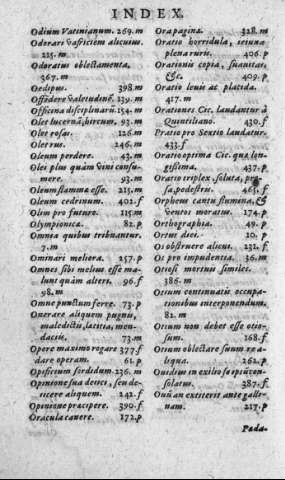 INDEX.
Odium Vatinianum. 269. m
Odorari vastitiem alicuius.
225. m
Odoratus oblectamenta.
367. m
Oedipus. 398. m
Offendere valetudinē. 139. m
Officina disciplinarū. 154. m
Olet lucernā, hircum. 93. m
Olet rosas. 126. m
Olet rus. 146. m
Oleum perdere. 43. m
Olei plus quàm vini consu-
mere. 93. m
Oleum flamma esse. 215. m
Oleum cedrinum. 402. f
Olim pro futuro. 115 m
Olympionica. 82. p
Omnia quibus tribuantur.
7. m
Ominari meliora. 257. p
Omnes sibi melius esse ma-
lunt quàm alteri. 96. f
98. m
Omne punctum ferre. 73. p
Onerare aliquem pugnis,
maledictis, lætitia, men-
dacÿs. 73. m
Opere maximo rogare 377. f
dare operam. 61. p
Opificium sordidum. 236. m
Opinione sua deici, seu de-
ÿcere aliquem. 242. f
Opinione præcipere. 390. f
Oracula canere. 172. p
Ora pagina. 328. m
Oratio horridula, ieiuna
plena ruris. 406. p
Orationis copia, suauitas,
&c. 409. p
Oratio leuis ac placida.
417. m
Orationes Cic. laudantur à
Quintiliano. 430. f
Oratio pro Sextio laudatur.
433. f
Oratio optima Cic. quæ lon-
gissima. 437. p
Oratio triplex, soluta, pres-
sa, pedestris. 465. f
Orpheus cantu flumina, &
ventos moratus. 174. p
Orthographia. 49. p
Ortus dici. 20. p
Os obstruere alicui. 232. f
Os pro impudentia. 36. m
Otiosi mortuis similes.
386. m
Otium continuatis occupa-
tionibus interponendum.
82. m
Otium non debet esse otio-
sum. 168. f
Otium oblectare suum re a-
liqua. 262. p
Ouidius in exilio se ipsū con-
solatus. 387. f
Ouū an extiterit ante galli-
nam. 217. p
Pæda-